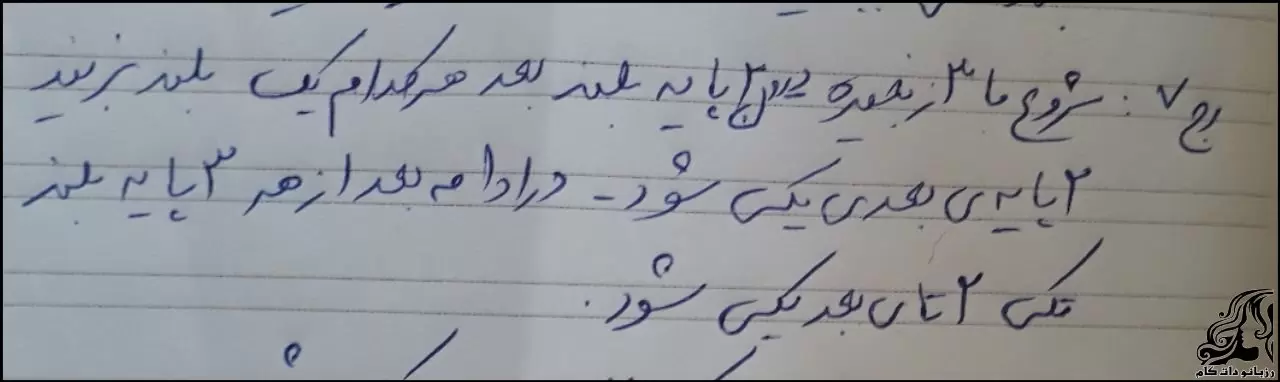 رج ۷: شروع با ۳ زنجیره ۳ پایه بلند بعد هرکدام یک بلند بزنید
۲ پایه ی بعدی یکی شود - در ادامه بعد از هر ۳ پایه بلند
تکی ۲ تای بعد یکی شود.
رزبانو دات کام